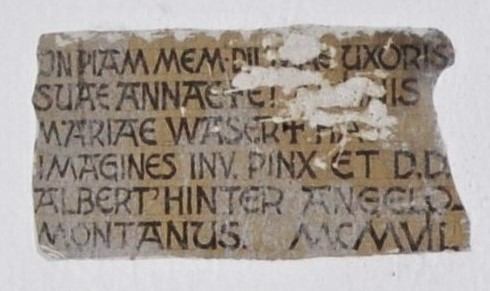 IN PIAM MEM. UXORIS
SUAE ANNAE
MARIAE WASER † HIA
IMAGINES INV. PINX ET D.D.
ALBERT' HINTER ANGELO-
MONTANUS. MCMVII.